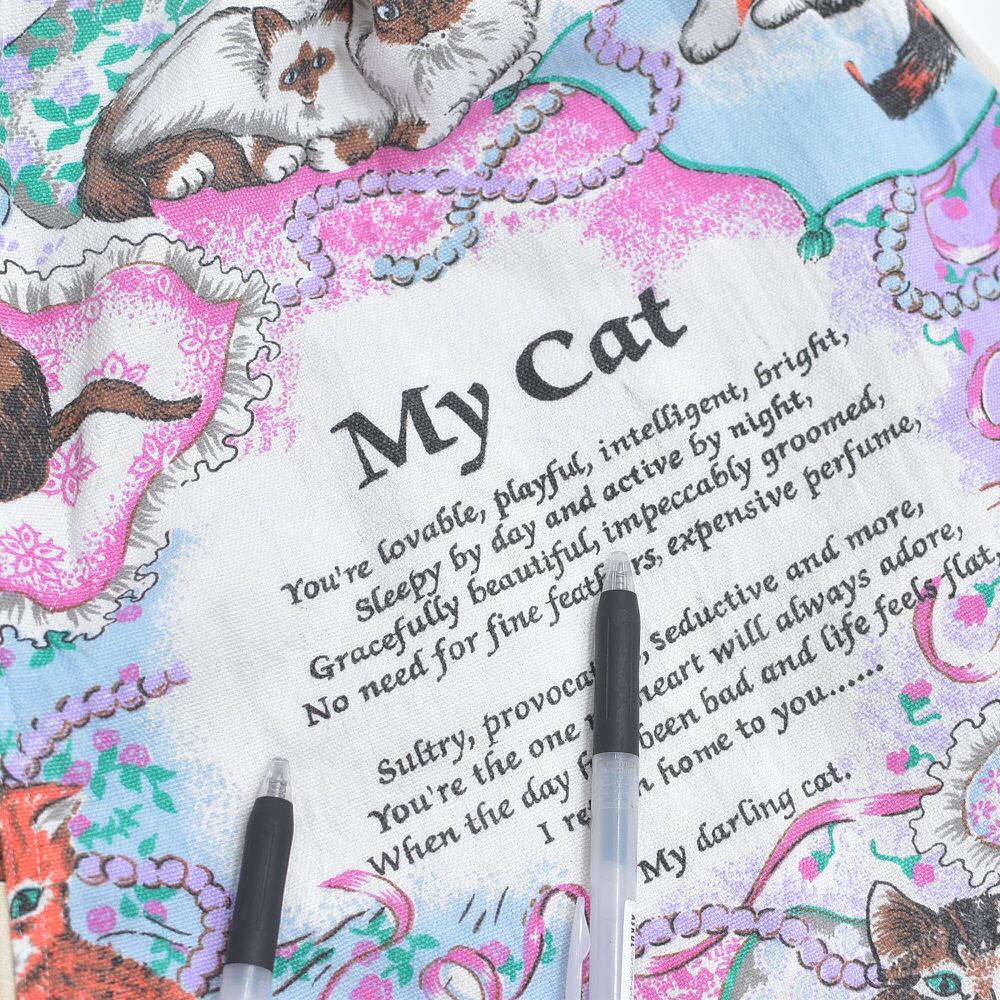 My Cat
You're lovable, playful, intelligent, bright,
Sleepy by day and active by night,
Gracefully beautiful, impeccably groomed,
No need for fine expensive perfume,
Sultry, seductive and more,
You're the one heart will always adore,
When the day been bad and life feels flat,
I home to you......
My darling cat.